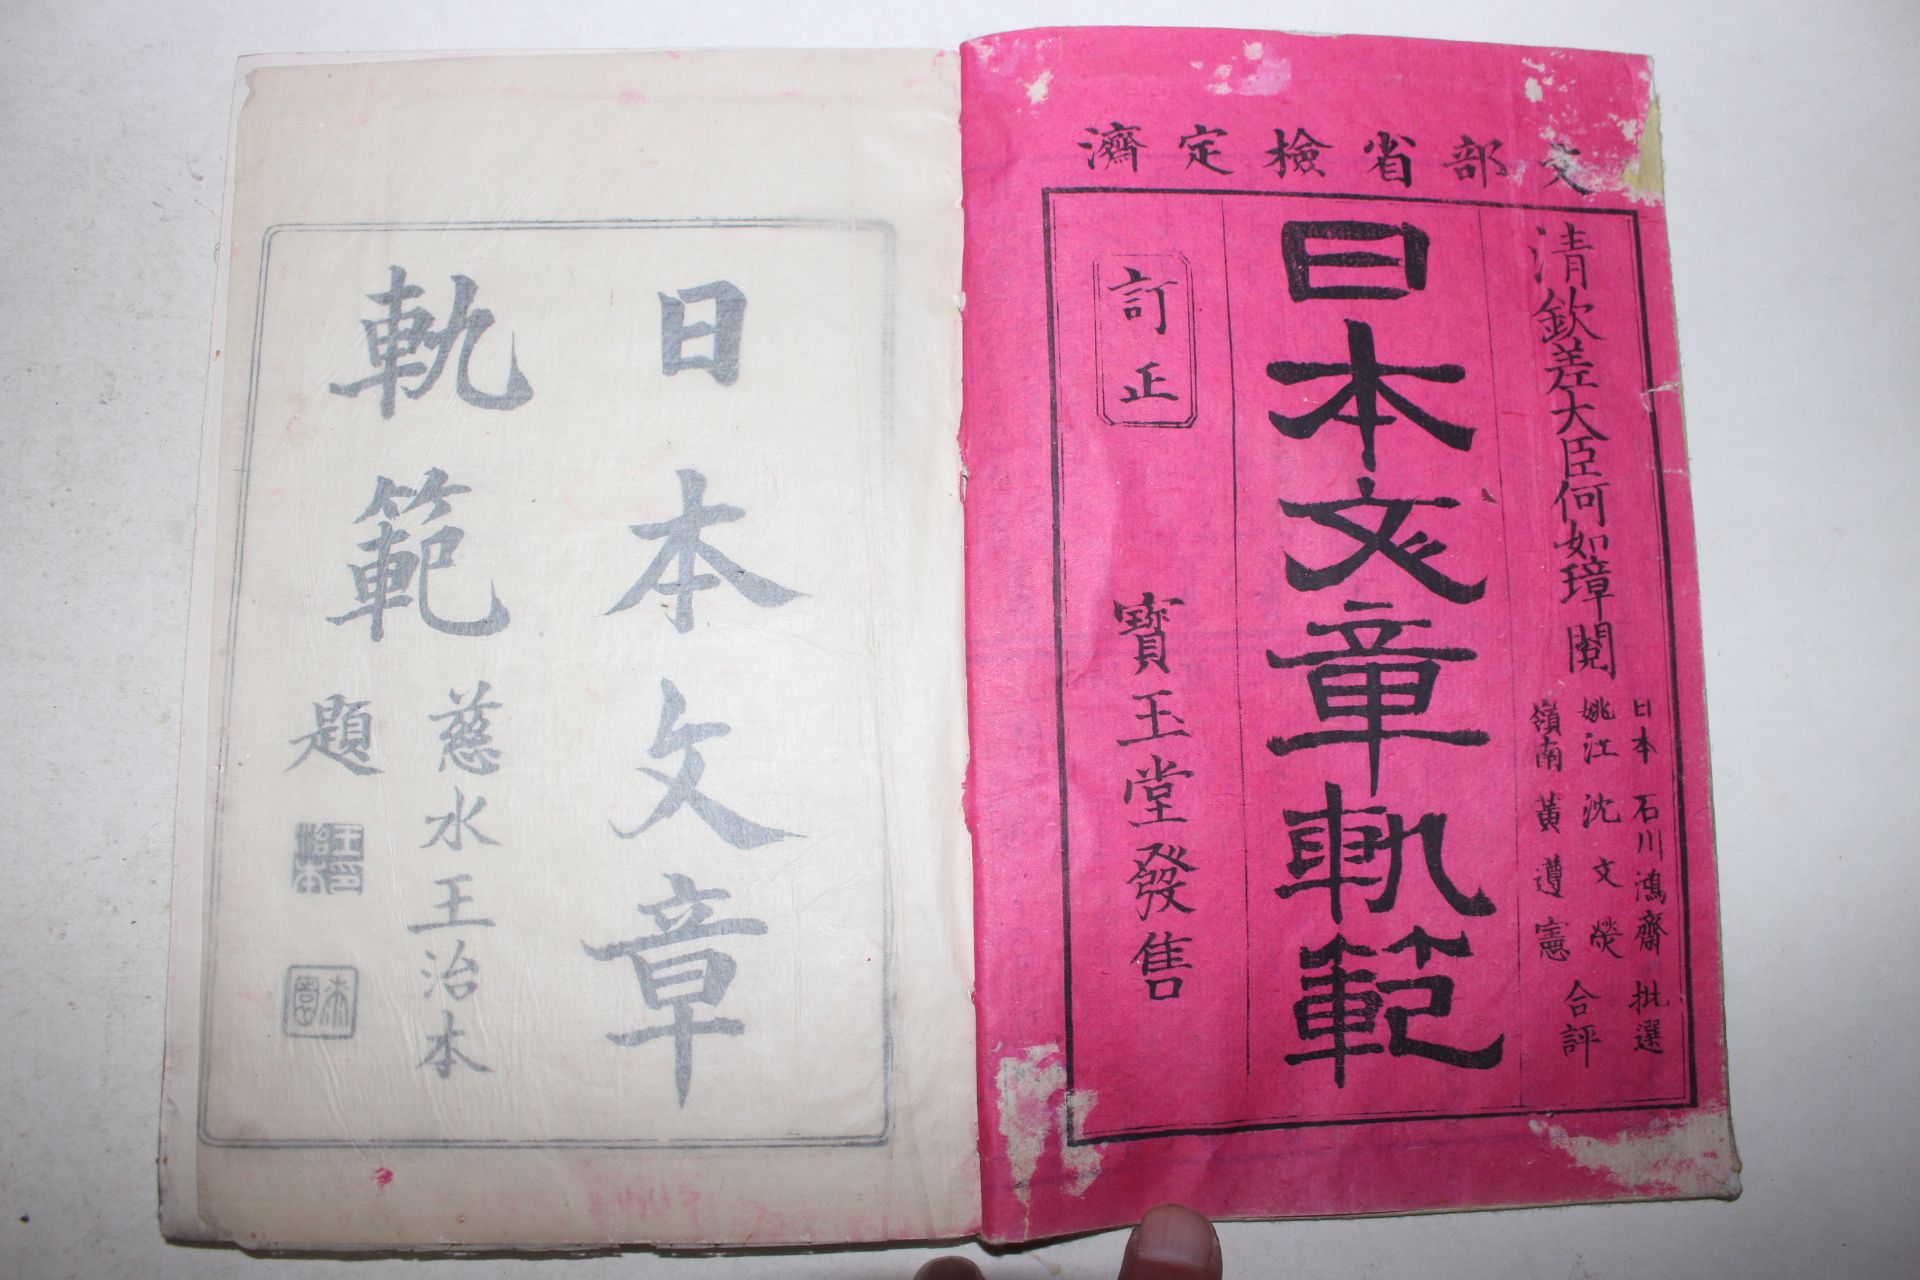 文部省檢定濟
清欽差大臣何如璋閱
日本 石川鴻齋 批選
姚江 沈文熒
嶺南 黃遵憲
合評
日本文章軌範
訂正
寶玉堂發售
日本文章
軌範
慈水王治本
題
王治本印